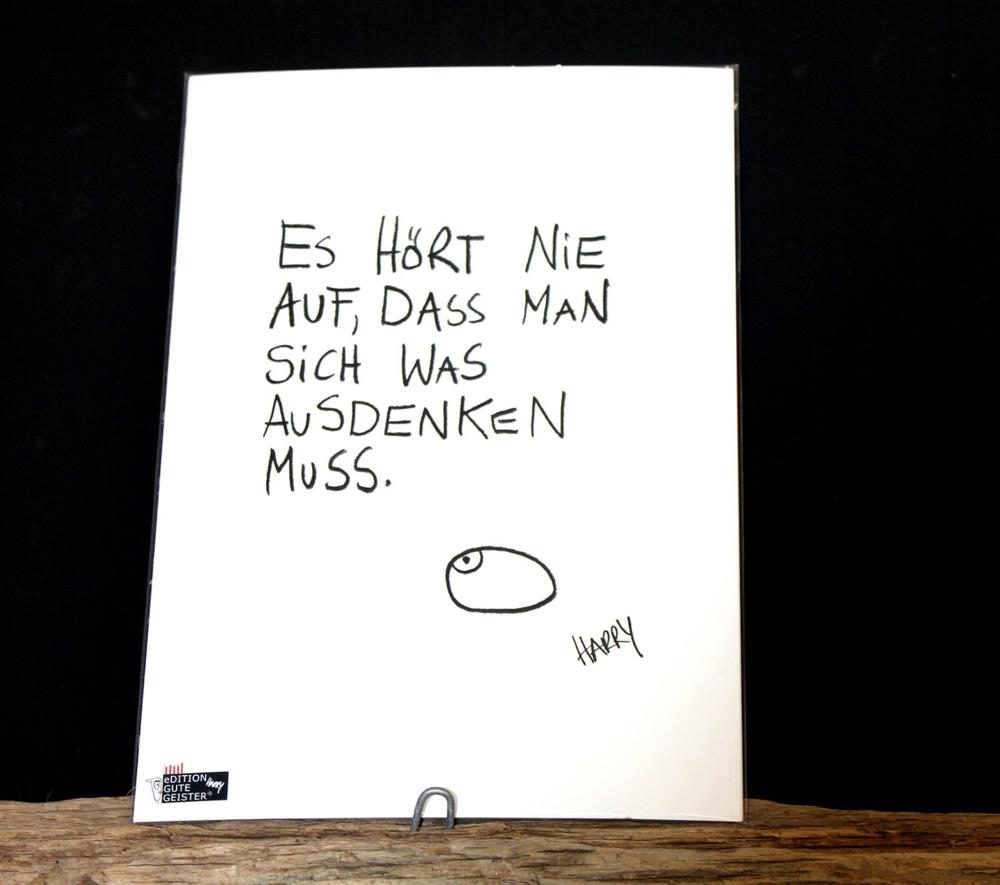 Es HÖRT NiE
AUF, DASS MAN
SiCH WAS
AUSDENKEN
MUSS.
HARRY
eDITION
GUTE
GEISTER®
HARRY